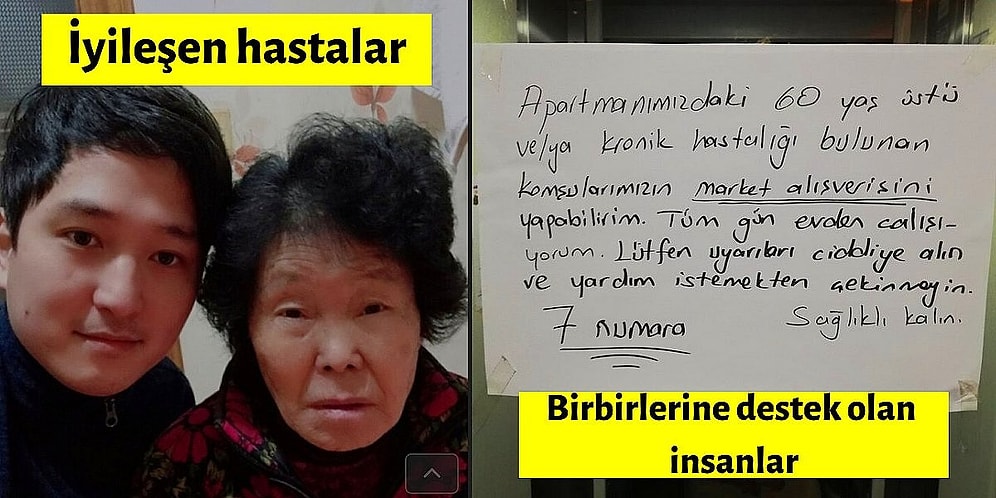 İyileşen hastalar
Apartmanımızdaki 60 yaş üstü
ve/ya kronik hastalığı bulunan
komşularımızın market alışverişini
yapabilirim. Tüm gün evden çalışı-
yorum. Lütfen uyarıları ciddiye alın
ve yardım istemekten çekinmeyin.
7 numara
Sağlıklı kalın.
Birbirlerine destek olan
insanlar